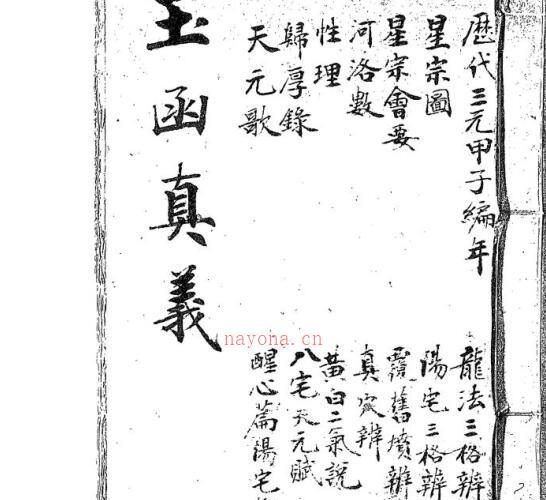 歴代三元甲子編年
星宗圖
星宗會要
河洛數
性理
歸厚錄
天元歌
龍法三格辨
陽宅三格辨
覆舊墳辨
真穴辨
黃白二氣說
八宅天元賦
醒心篇陽宅
玉函真義
nayona.cn